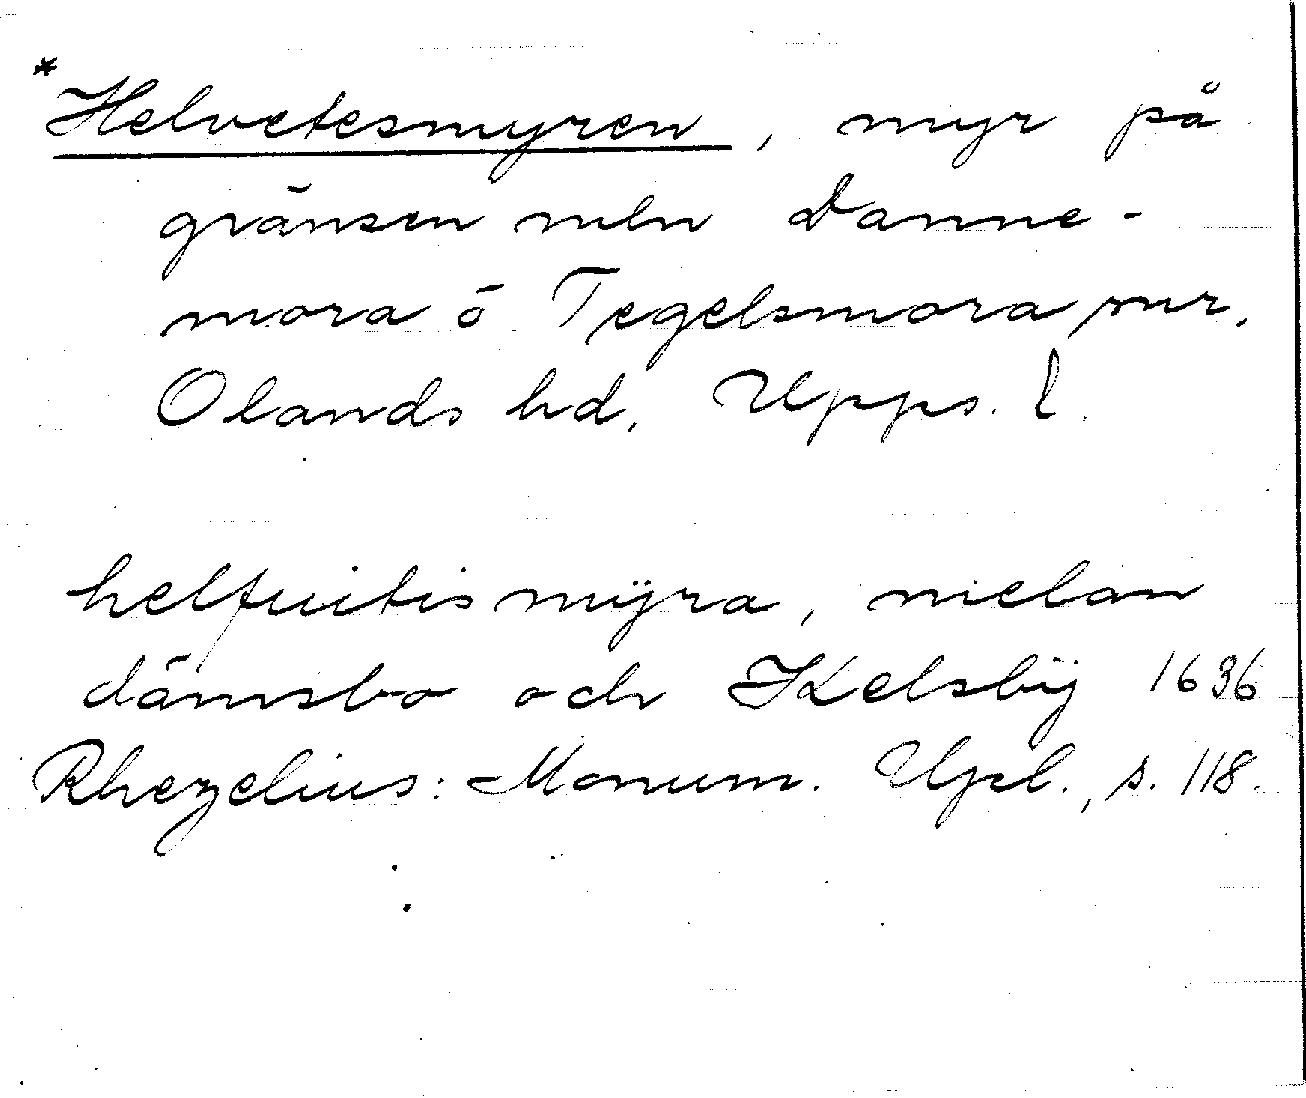 *Helvetesmyren, myr på
gränsen mln Danne-
mora o Tegelsmora snr,
Olands hd, Upps. l.
helfuitis mÿra, melan
dämsbo och Kelsbÿ 1636
Rhezelius: Monum. Upl., s. 118.